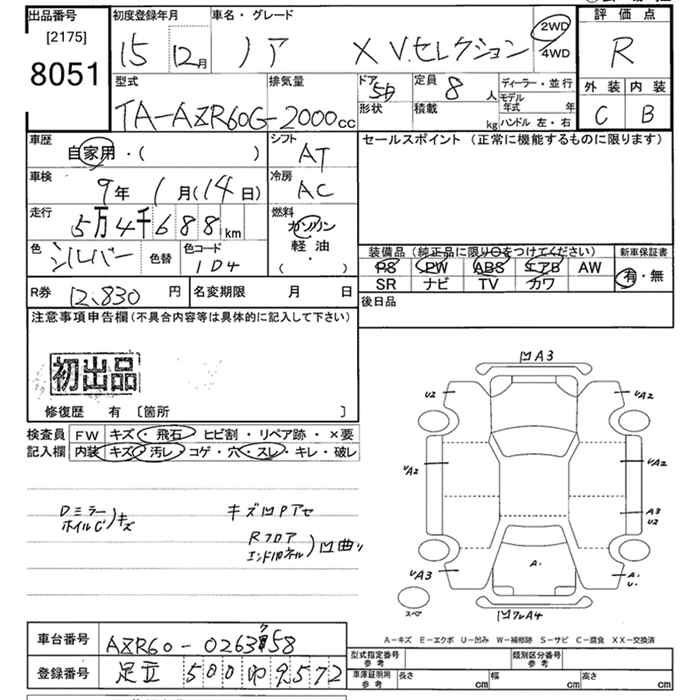 出品番号
[2175]
8051
初度登録年月
15 12月
車名・グレード
ノア X V.セレクション
2WD
4WD
評価点
R
型式
TA-AZR60G
排気量
2000cc
ドア
5D
形状
定員
8人
積載
kg
ディーラー・並行
モデル
年式 年
ハンドル 左・右
外装 内装
C B
車歴
自家用・( )
シフト
AT
セールスポイント (正常に機能するものに限ります)
車検
9年 1月(14日)
冷房
AC
走行
5万4千688km
燃料
ガソリン
軽油
( ・ )
色
シルバー
色替
色コード
1D4
装備品 (純正品に限り○をつけてください)
PS PW ABS エアB AW
SR ナビ TV カワ
新車保証書
有・無
R券 12,830円
名変期限 月 日
後日品
注意事項申告欄 (不具合内容等は具体的に記入して下さい)
初出品
修復歴 有 [箇所 ]
検査員 FW キズ・飛石・ヒビ割・リペア跡・×要
記入欄 内装 キズ・汚レ・コゲ・穴・スレ・キレ・破レ
Dミラー
ホイルC )キズ
キズ凹Pアセ
Rフロア
エンドパネル )凹曲り
凹A3
U2
UA2
UA2
UA2
A3
U2
UA3
A・
A・
U・
凹フレA4
スペア
A-キズ E-エクボ U-凹み W-補修跡 S-サビ C-腐食 XX-交換済
車台番号 AZR60-0263758
7
登録番号 足立 500 の 9572
型式指定番号
参考
類別区分番号
参考
車庫証明用
参考
長さ cm
幅 cm
高さ cm